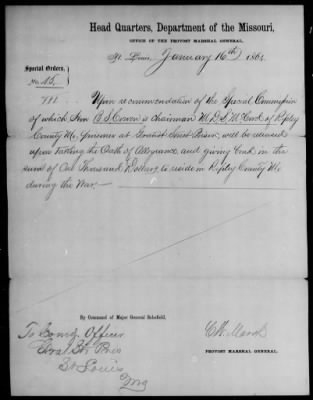 Head Quarters, Department of the Missouri,
OFFICE OF THE PROVOST MARSHAL GENERAL,
St. Louis, January 16th 186
Special Orders,
No. 15.
Upon recommendation of the Special Commission
of which Hon is Chairman of Ripley
County Mo, prisoner at Gratiot Street Prison, will be released
upon taking the Oath of Allegiance and giving bond in the
sum of One Thousand Dollars to reside in Ripley County Mo
during the War.
By Command of Major General Schofield,
To Comdg Officer
St Pris
St Louis
Mo
PROVOST MARSHAL GENERAL.